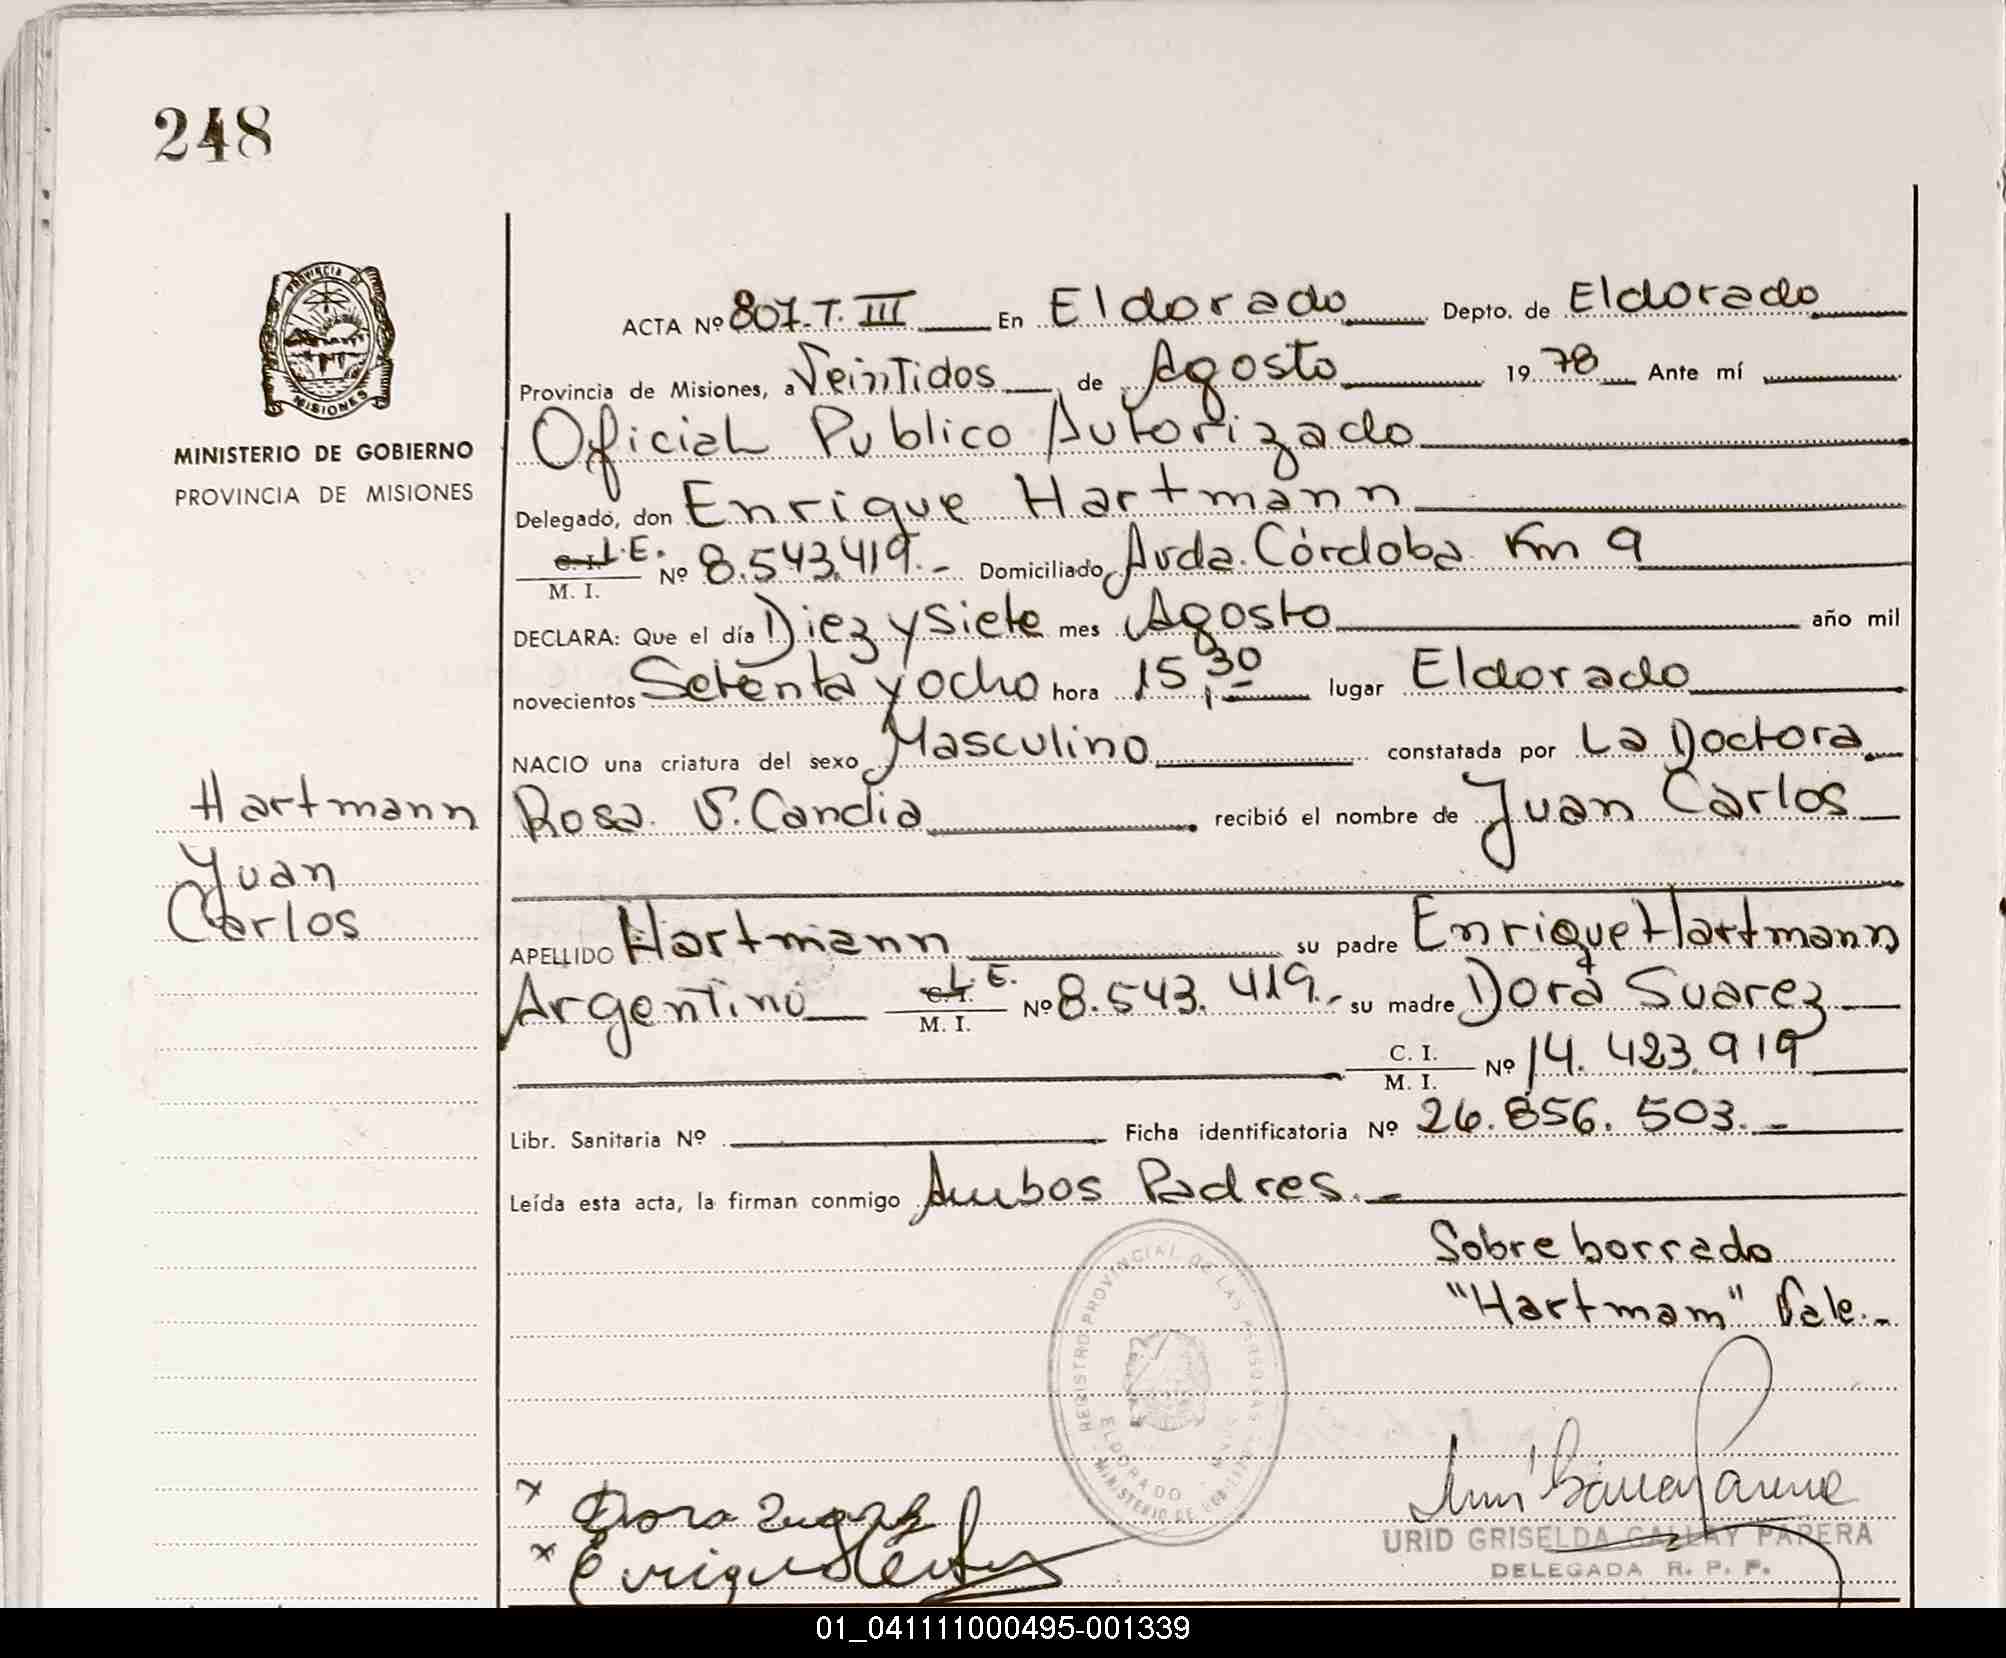 248
PROVINCIA DE
MISIONES
MINISTERIO DE GOBIERNO
PROVINCIA DE MISIONES
Hartmann
Juan
Carlos
ACTA Nº 807.T. III En Eldorado Depto. de Eldorado
Provincia de Misiones, a Veintidos de Agosto 1978 Ante mí
Oficial Publico Autorizado
Delegado, don Enrique Hartmann
C. I. L.E.
M. I. Nº 8.543.419.- Domiciliado Avda. Córdoba Km 9
DECLARA: Que el día Diez y Siete mes Agosto año mil
novecientos Setenta y ocho hora 15,30 lugar Eldorado
NACIO una criatura del sexo Masculino constatada por La Doctora
Rosa V. Candia recibió el nombre de Juan Carlos
APELLIDO Hartmann su padre Enrique Hartmann
Argentino C.I. L.E. M. I. Nº 8.543.419.- su madre Dora Suarez
C. I.
M. I. Nº 14.423.919
Libr. Sanitaria Nº Ficha identificatoria Nº 26.856.503.-
Leída esta acta, la firman conmigo Ambos Padres.-
Sobre borrado
"Hartmam" Vale.-
REGISTRO PROVINCIAL DE LAS PERSONAS
ELDORADO
MINISTERIO DE GOBIERNO
x Dora Suarez
x Enrique
URID GRISELDA GALLAY PARERA
DELEGADA R. P. P.
01_041111000495-001339